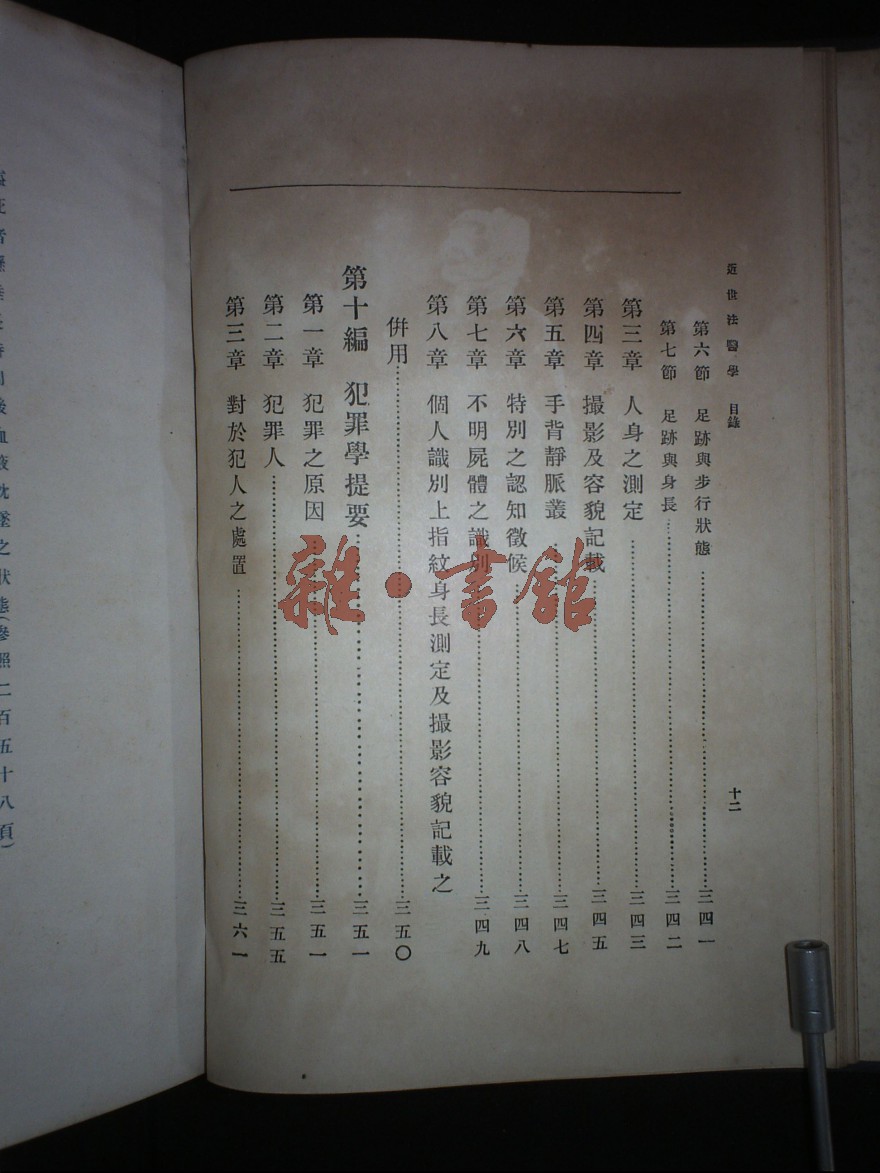 近世法醫學 目錄 十二
第六節 足跡與步行狀態……三四一
第七節 足跡與身長……三四二
第三章 人身之測定……三四三
第四章 撮影及容貌記載……三四五
第五章 手背靜脈叢……三四七
第六章 特別之認知徵候……三四八
第七章 不明屍體之識別……三四九
第八章 個人識別上指紋身長測定及撮影容貌記載之
併用……三五〇
第十編 犯罪學提要……三五一
第一章 犯罪之原因……三五一
第二章 犯罪人……三五五
第三章 對於犯人之處置……三六一
雜·書館
後血液沈墜之狀態(參照二百五十八頁)